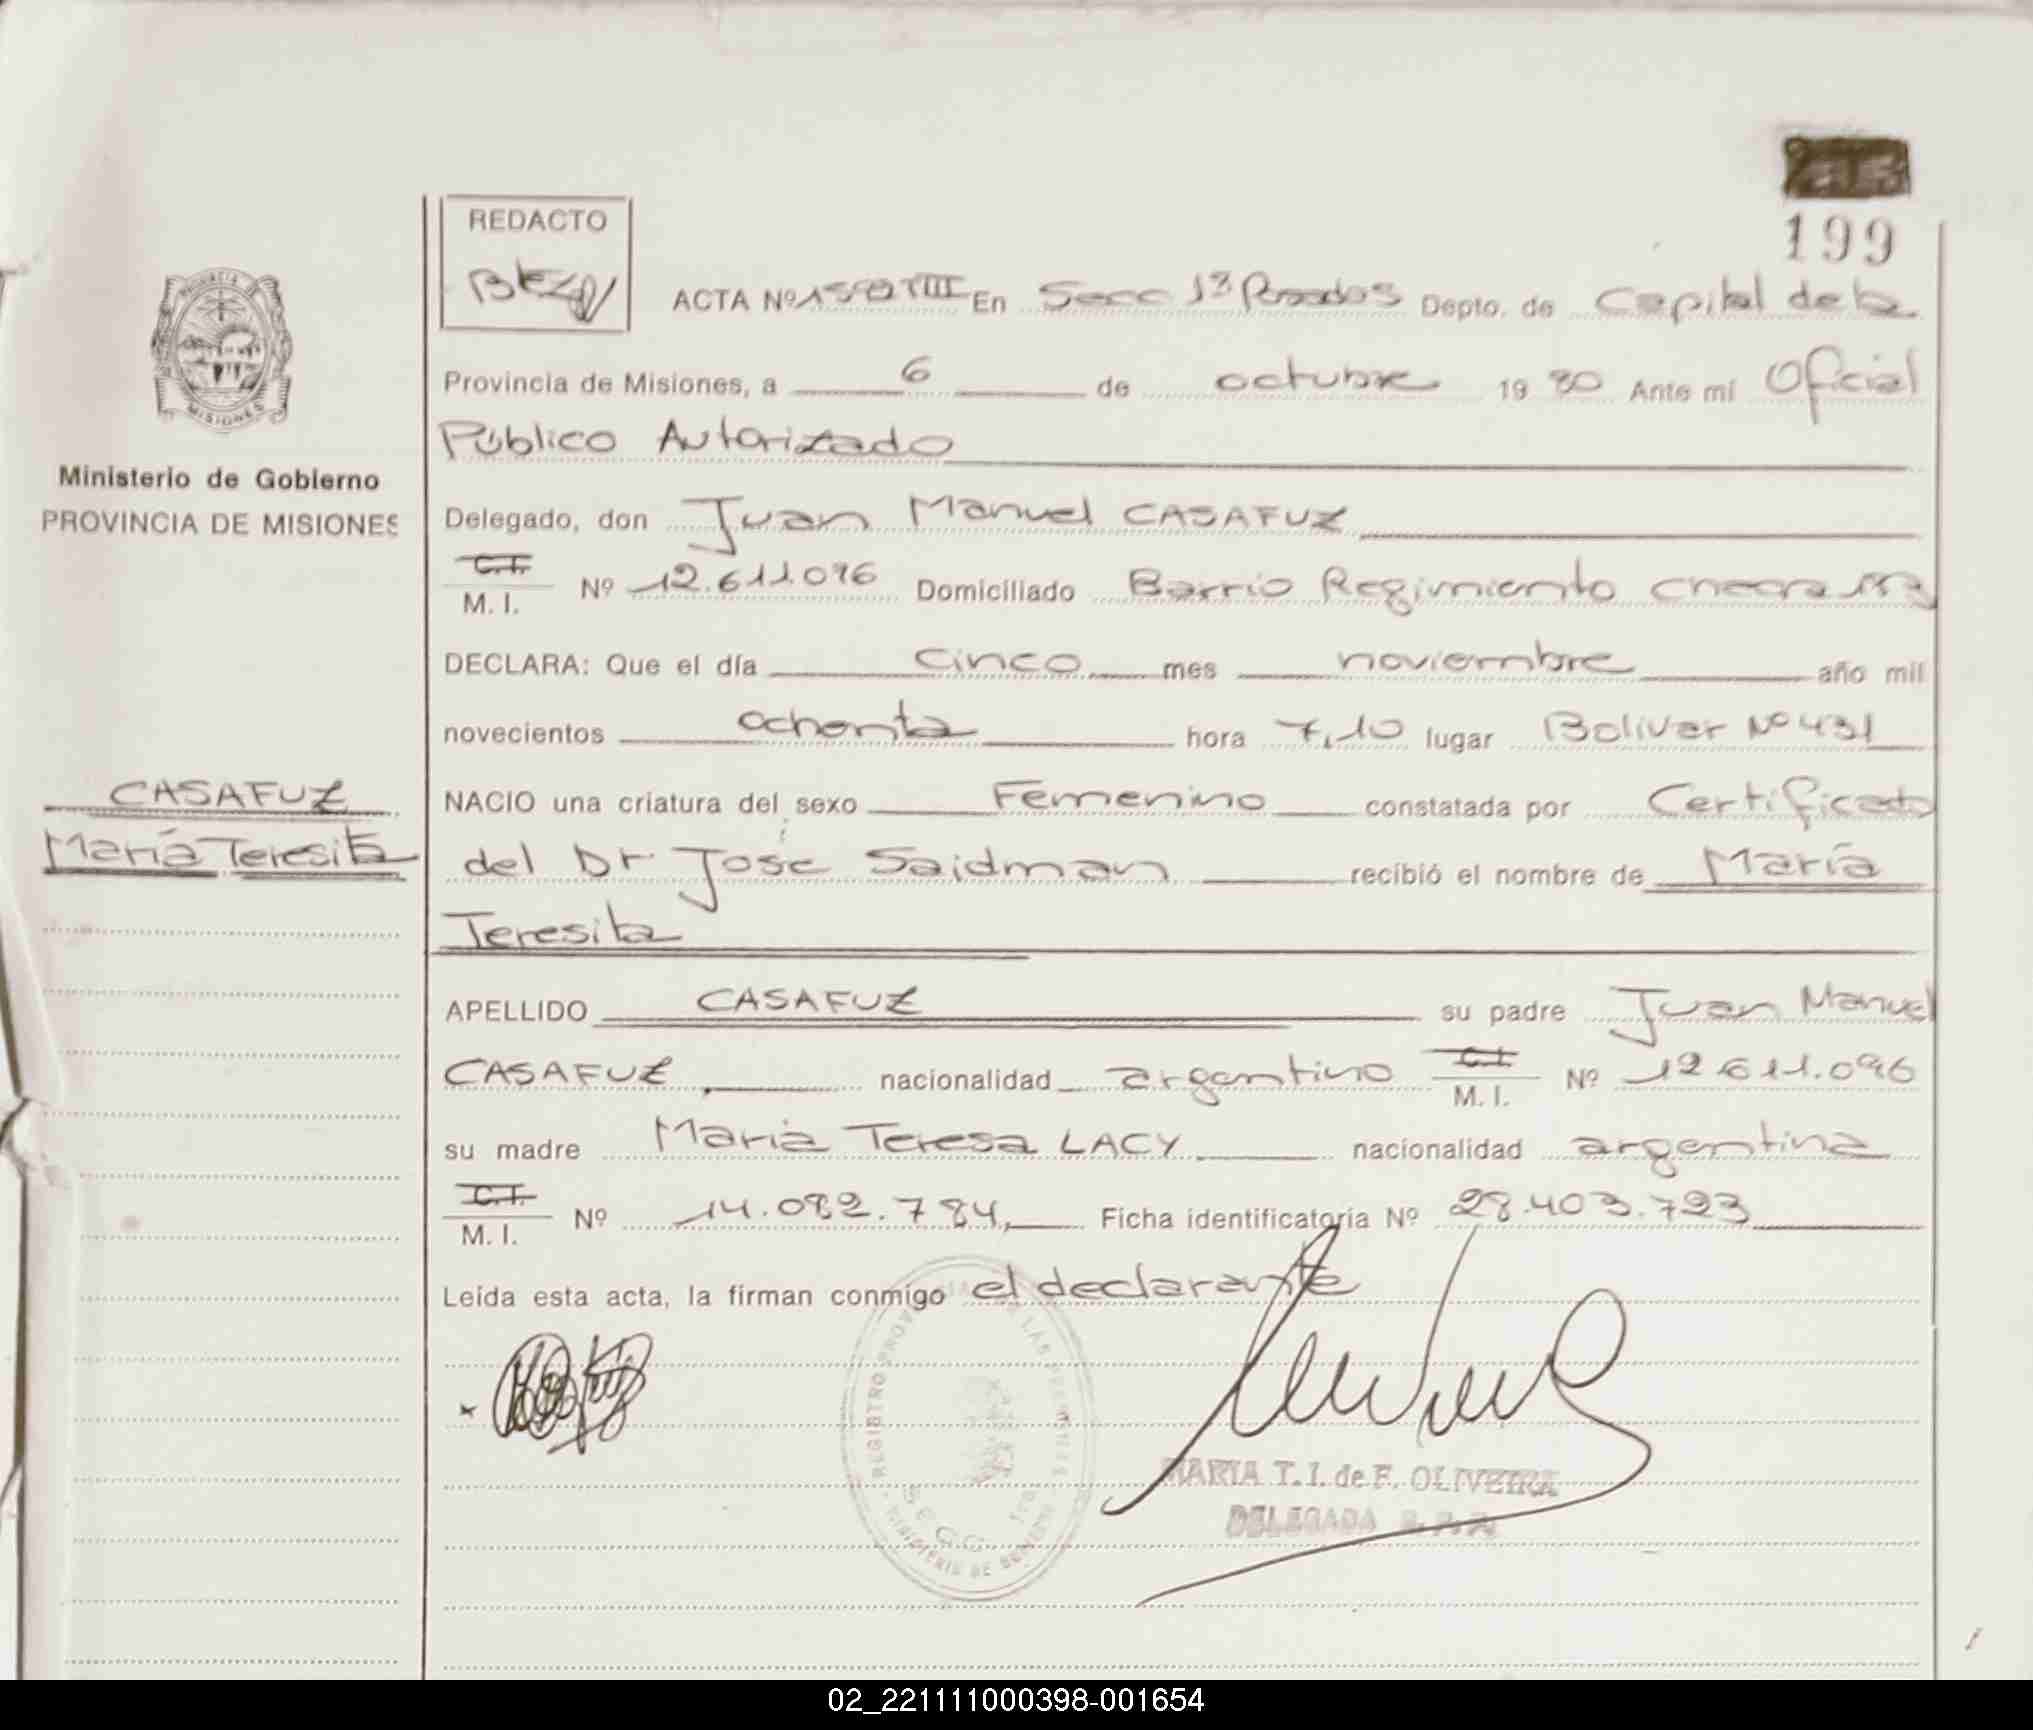 199
REDACTO
ACTA Nº En Secc 1ª Posadas Depto. de Capital de la
Provincia de Misiones, a 6 de octubre 1980 Ante mí Oficial
Público Autorizado
Ministerio de Gobierno
PROVINCIA DE MISIONES
Delegado, don Juan Manuel CASAFUZ
C.I.
M. I. Nº 12.611.096 Domiciliado Barrio Regimiento
DECLARA: Que el día cinco mes noviembre año mil
novecientos ochenta hora 7,10 lugar Bolivar Nº 431
CASAFUZ
María Teresita
NACIO una criatura del sexo Femenino constatada por Certificado
del Dr José Saidman recibió el nombre de María
Teresita
APELLIDO CASAFUZ su padre Juan Manuel
CASAFUZ nacionalidad argentino C.I. M. I. Nº 12.611.096
su madre María Teresa LACY nacionalidad argentina
C.I.
M. I. Nº 14.082.784, Ficha identificatoria Nº 28.403.723
Leída esta acta, la firman conmigo el declarante
REGISTRO PROVINCIAL DE LAS PERSONAS
SECC. 1ra
MINISTERIO DE GOBIERNO
MARIA T. I. de F. OLIVEIRA
DELEGADA R. P. P.
02_221111000398-001654